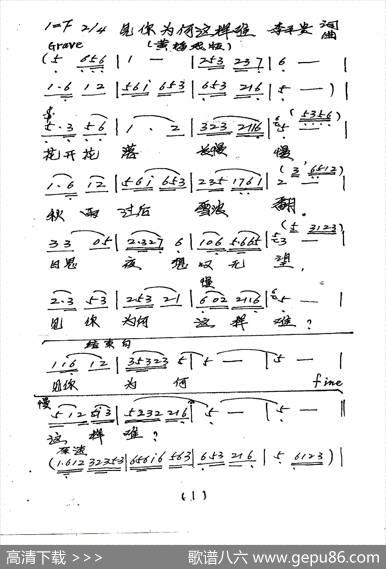 1=F 2/4 见你为何这样难 李平安 词曲
Grave (黄梅戏版)
(5 656 | 1 — | 253 237 | 6 — |
1·6 12 | 561 653 | 653 216 | 5 —) |
5·3 56 | 1·2 | 323 216 | 5 (5356) |
花开花落 长慢慢
1·6 12 | 561 653 | 235 1761 | 2 (3 6513) |
秋雨过后 雪浪翻。
33 05 | 2·327 6 | 106 5665 | 53 (5 3123) |
日思夜想叹无望,
慢
2·3 53 | 253 21 | 602 216 | 5 — |
见你为何 这样难?
结束句
116 12 | 35323 5 | 5 — | 5 — |
见你为何 fine
慢
512 513 | 5232 216 | 5 — | 5 — ||
这样难?
(1·612 32353 | 65616 563 | 653 216 | 5 6123) |
(1)
高清下载 >>>
歌谱八六 www.gepu86.com